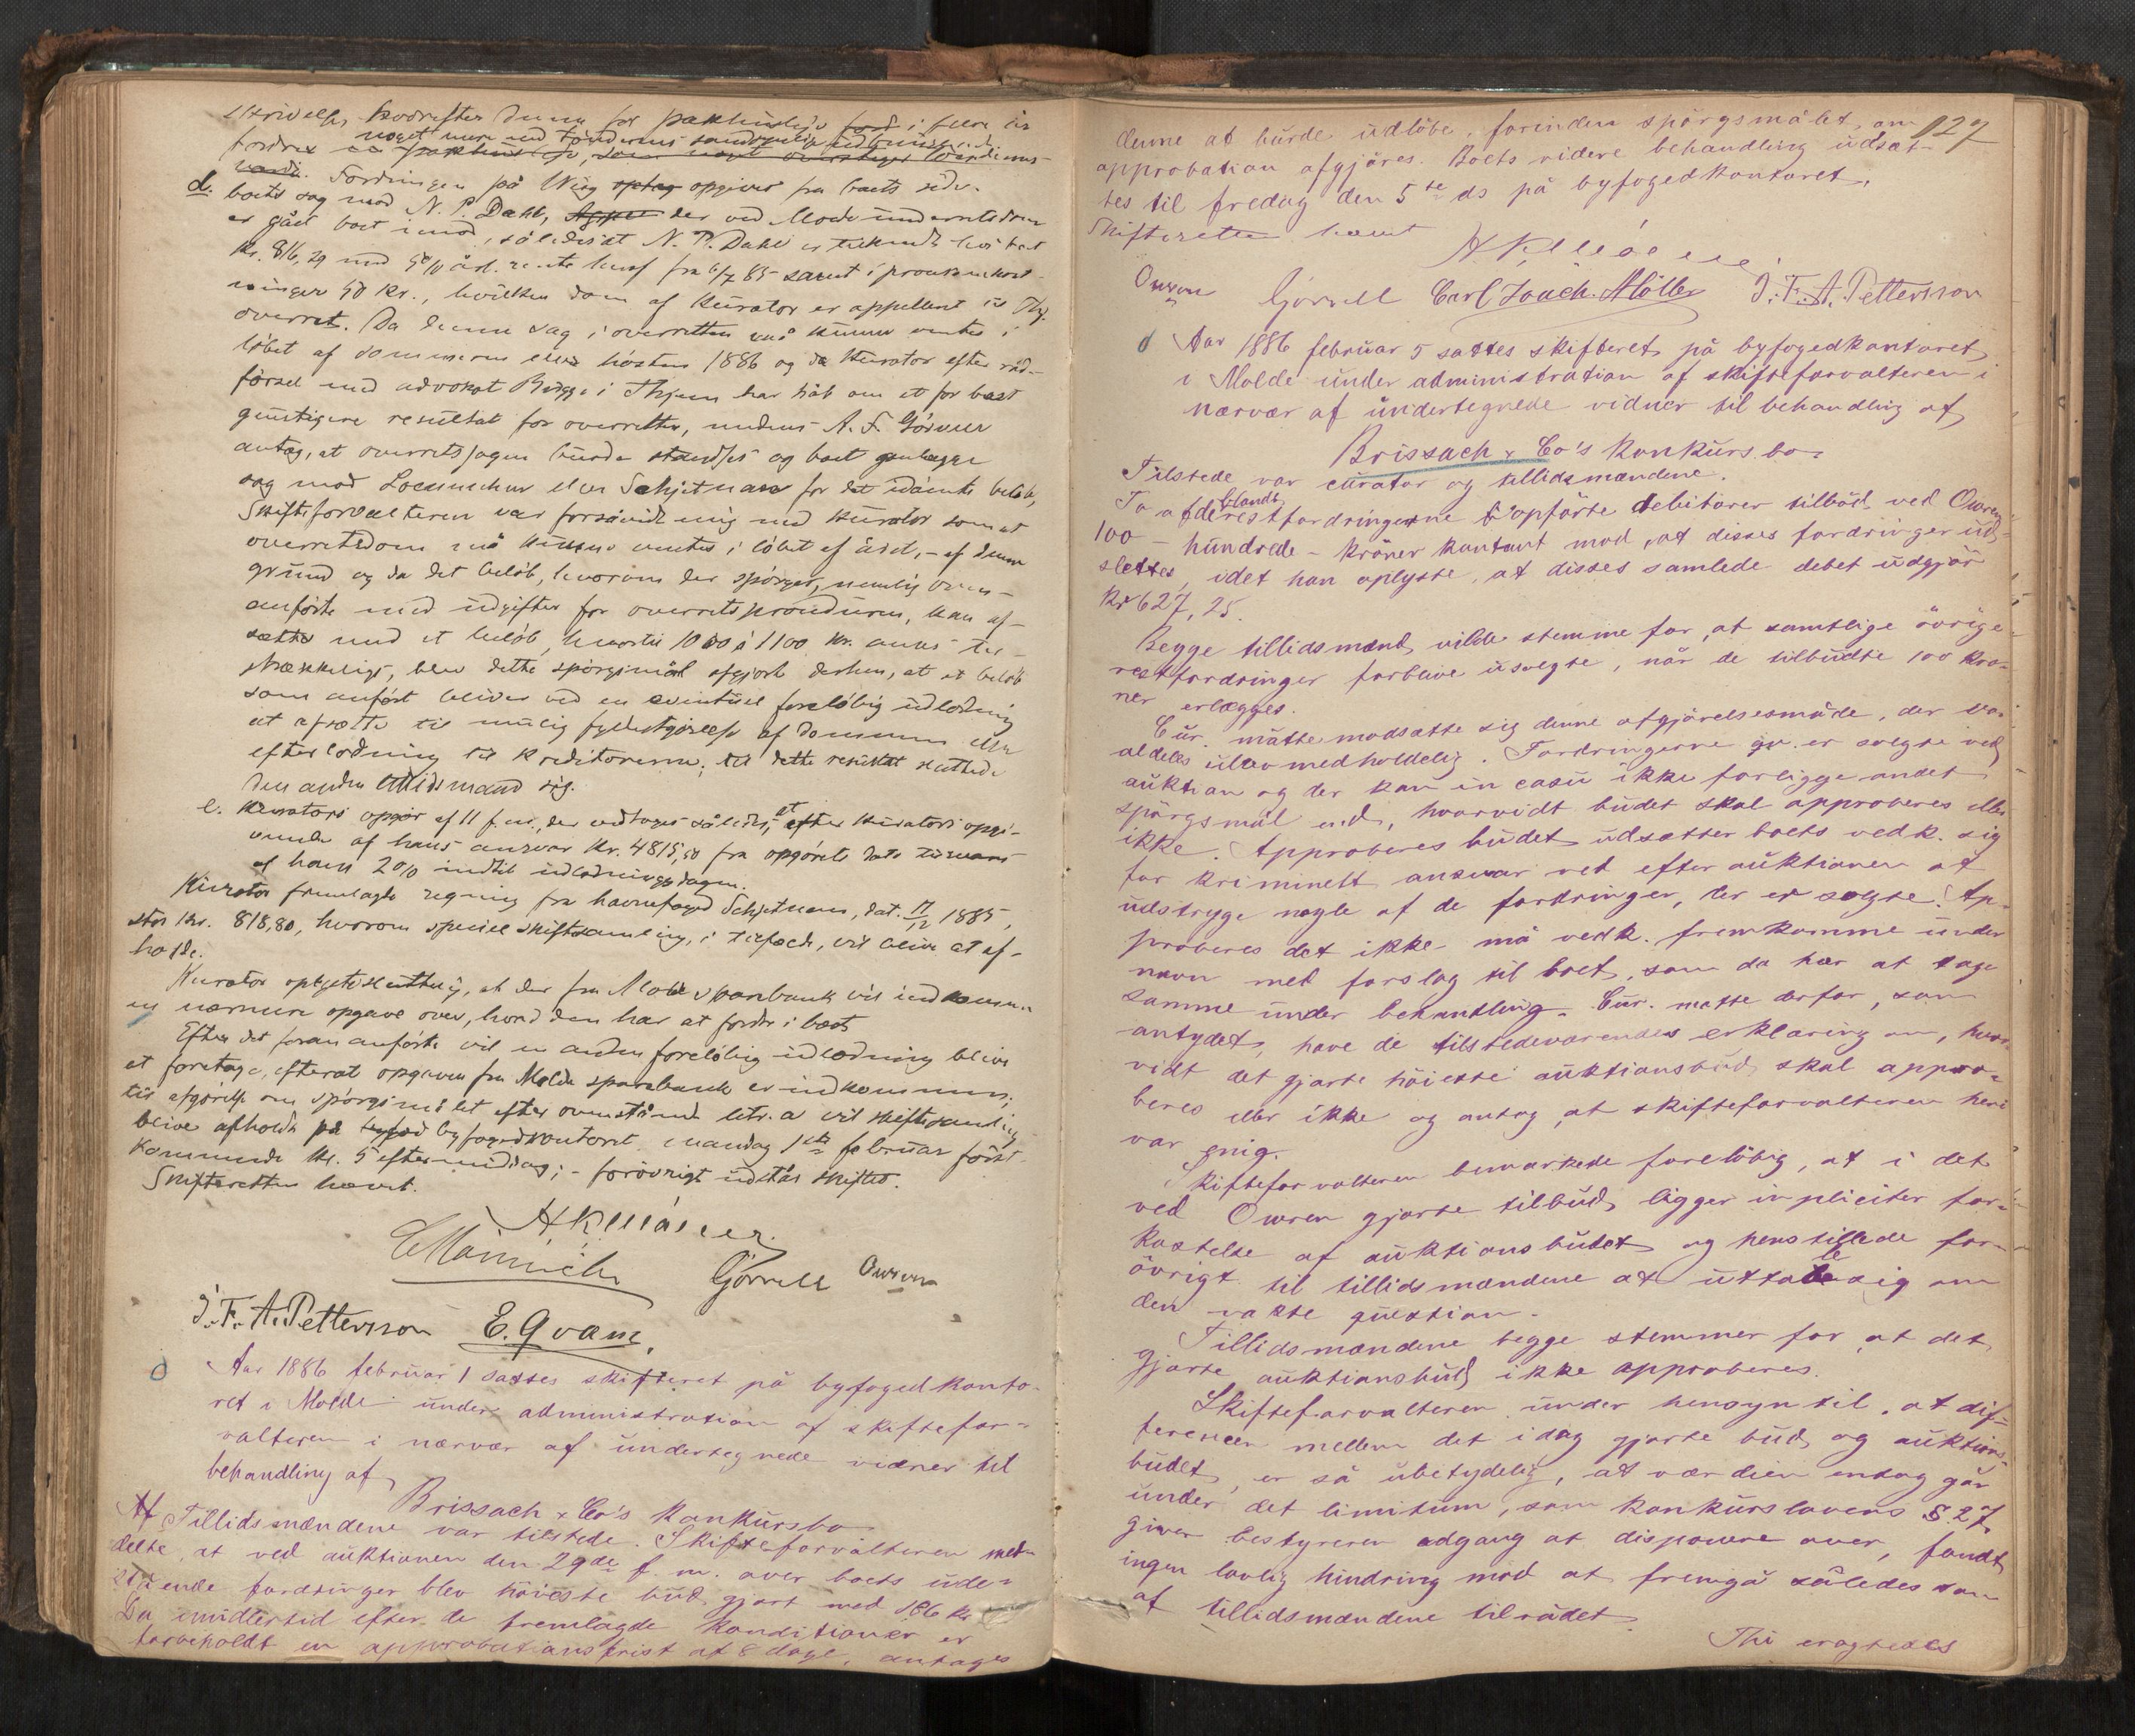 fordrer noget mere end Töndernes
værdi. Fordringen på Wiig optag opgives fra boets side.
d. boets sag mod N. P. Dahl, Appel der ved Molde underretsdom
er gået boet imod, således at N. P. Dahl er tilkendt hos boet
Kr. 816,29 med 5 % årl. rente heraf fra 6/7 85 samt i procesomkost-
ninger 50 Kr., hvilken dom af kurator er appelleret til Thj.
overret. Da denne sag i overretten må kunne ventes i
löbet af sommeren eller hösten 1886 og da kurator efter råd-
försel med advokat Bugge i Thjem har håb om et for boet
gunstigere resultat for overretten, medens A. F. Görvell
antog, at overretssagen burde standses og boet anlægge
sag mod Loennechen eller Schjetnan for det idömte belöb,
Skifteforvalteren var forsåvidt enig med kurator som at
overretsdom må kunne ventes i löbet af året, - af denne
grund og da det belöb, hvorom der spörges, nemlig oven-
anförte med udgifter for overretsproceduren, kan af-
sættes med et belöb, hvortil 1000 à 1100 kr. anses til-
strækkeligt, blev dette spörgsmål afgjort derhen, at et belöb
som anfört bliver ved en eventuel forelöbig udlodning
at afsætte til mulig fyldestgjörelse af dommen eller
efterlodning til kreditorerne; til dette resultat sluttede
den anden tillidsmand sig.
e. Kurators opgjör af 11 f.m., der vedtoges således, at efter kurators opgi-
vende af hans ansvar kr. 4815,50 fra opgjörets dato tilsvares
af ham 2 % indtil udlodningsdagen.
Kurator fremlagde regning fra havnefoged Schjetnan, dat. 17/12 1885,
stor kr. 818,80, hvorom speciel skiftesamling, i tilfælde, vil blive at af-
holde.
Kurator oplyste sluttelig, at der fra Molde sparebank vil indkomme
en nærmere opgave over, hvad den har at fordre i boet
Efter det foran anförte vil en anden forelöbig udlodning blive
at foretage, efterat opgaven fra Molde sparebank er indkommen;
til afgörelse om spörgsmålet efter ovenstående litr. a vil skiftesamling
blive afholdt på byfogedkontoret mandag 1ste februar först-
kommende kl. 5 eftermiddag; - forövrigt udstår skiftet.
Skifteretten hævet.
Görvell Owren
J. F. A. Pettersson E. Qvam.
Aar 1886 februar 1 sattes skifteret på byfogedkonto-
ret i Molde under administration af skiftefor-
valteren i nærvær af undertegnede vidner til
behandling af
Brissach & Co's konkursbo
Af Tillidsmændene var tilstede. Skifteforvalteren med-
delte, at ved auktionen den 29de f. m. over boets ude-
stående fordringer blev höieste bud gjort med 186 kr
Da imidlertid efter de fremlagde konditioner er
forbeholdt en approbationsfrist af 8 dage, antages
127
denne at burde udlöbe, forinden spörgsmålet om
approbation afgjöres. Boets videre behandling udsat-
tes til fredag den 5te ds på byfogedkontoret.
Skifteretten hævet
Owren Görvell Carl Joach. Möller J. F. A. Pettersson
Aar 1886 februar 5 sattes skifteret på byfogedkontoret
i Molde under administration af skifteforvalteren i
nærvær af undertegnede vidner til behandling af
Brissach & Co's konkursbo.
Tilstede var curator og tillidsmændene.
To af de blandt restfordringerne opförte debitorer tilböd ved Owren
100 - hundrede - kroner kontant mod, at disses fordringer ud-
slettes, idet han oplyste, at disses samlede debet udgjör
kr 627,25.
Begge tillidsmænd vilde stemme for, at samtlige övrige
restfordringer forblive usolgte, når de tilbudte 100 kro-
ner erlægges.
Cur. måtte modsætte sig denne afgjörelsesmåde, der var
aldeles ulovmedholdelig. Fordringerne er solgte ved
auktion og der kan in casu ikke foreligge andet
spörgsmål end, hvorvidt budet skal approberes eller
ikke. Approberes budet udsætter boets vedk. sig
for kriminelt ansvar ved efter auktionen at
udstryge nogle af de fordringer, der er solgte. Ap-
proberes det ikke må vedk. fremkomme under
navn med forslag til boet, som da har at tage
samme under behandling. Cur. måtte derfor, som
antydet, have de tilstedeværendes erklæring om, hvor-
vidt det gjorte höieste auktionsbud skal appro-
beres eller ikke og antog, at skifteforvalteren heri
var enig.
Skifteforvalteren bemærkede forelöbig, at i det
ved Owren gjorte tilbud ligger impliciter for-
kastelse af auktionsbudet og henstillede for-
övrigt til tillidsmændene at uttale sig om
den vakte question.
Tillidsmændene begge stemmer for, at det
gjorte auktionsbud ikke approberes.
Skifteforvalteren under hensyn til, at dif-
ferencen mellem det idag gjorte bud og auktions-
budet, er så ubetydelig, at værdien endog går
under det limitum, som konkurslovens § 27
giver bestyreren adgang at disponere over, fandt
ingen lovlig hindring mod at fremgå således som
af tillidsmændene tilrådet.
Thi eragtedes